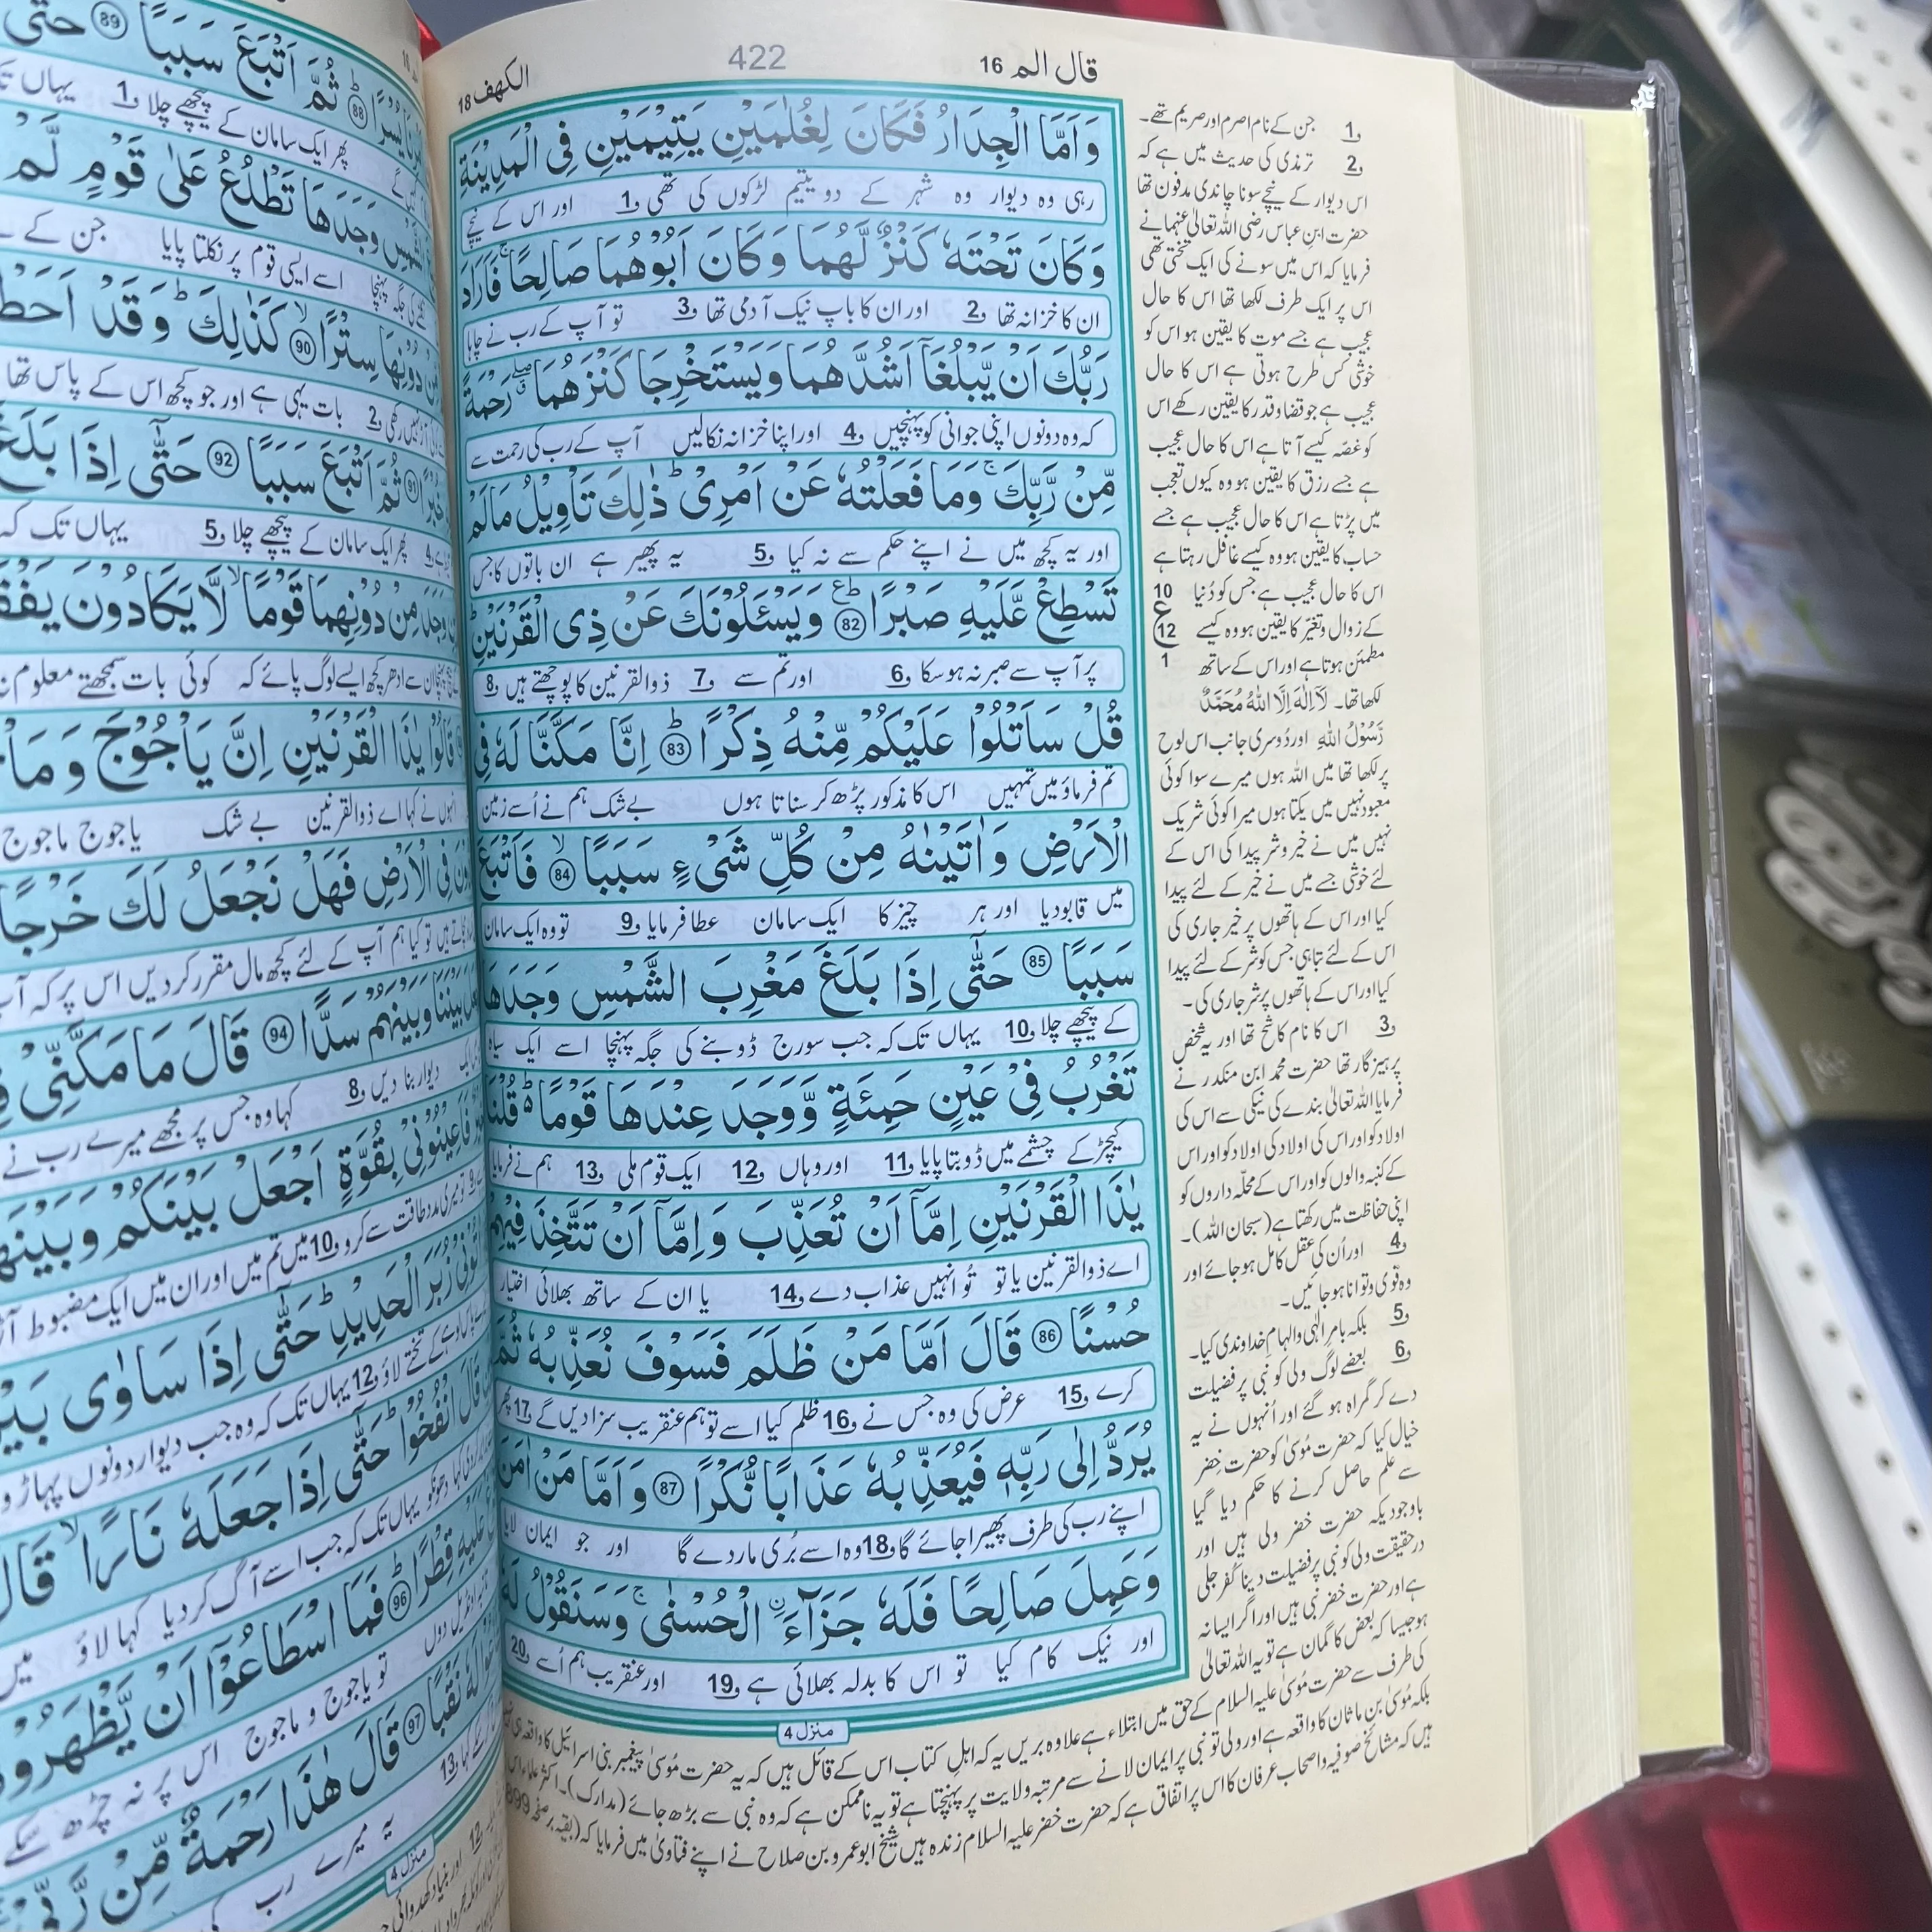 الكهف 18
422
قال الم 16
وَاَمَّا الْجِدَارُ فَكَانَ لِغُلٰمَيْنِ يَتِيْمَيْنِ فِى الْمَدِيْنَةِ
رہی وہ دیوار وہ شہر کے دو یتیم لڑکوں کی تھی و1 اور اس کے نیچے
وَكَانَ تَحْتَهٗ كَنْزٌ لَّهُمَا وَكَانَ اَبُوْهُمَا صَالِحًا ۚ فَاَرَادَ
ان کا خزانہ تھا و2 اور ان کا باپ نیک آدمی تھا و3 تو آپ کے رب نے چاہا
رَبُّكَ اَنْ يَّبْلُغَاۤ اَشُدَّهُمَا وَيَسْتَخْرِجَا كَنْزَهُمَا ۖ رَحْمَةً
کہ وہ دونوں اپنی جوانی کو پہنچیں و4 اور اپنا خزانہ نکالیں آپ کے رب کی رحمت سے
مِّنْ رَّبِّكَ ۚ وَمَا فَعَلْتُهٗ عَنْ اَمْرِىْ ؕ ذٰلِكَ تَاْوِيْلُ مَا لَمْ
اور یہ کچھ میں نے اپنے حکم سے نہ کیا و5 یہ پھیر ہے ان باتوں کا جس
تَسْطِعْ عَّلَيْهِ صَبْرًا ؕ 82 وَيَسْـَٔلُوْنَكَ عَنْ ذِى الْقَرْنَيْنِ ؕ
پر آپ سے صبر نہ ہو سکا و6 اور تم سے و7 ذوالقرنین کا پوچھتے ہیں و8
قُلْ سَاَتْلُوْا عَلَيْكُمْ مِّنْهُ ذِكْرًا ؕ 83 اِنَّا مَكَّنَّا لَهٗ فِى
تم فرماؤ میں تمہیں اس کا مذکور پڑھ کر سناتا ہوں بے شک ہم نے اُسے زمین
الْاَرْضِ وَاٰتَيْنٰهُ مِنْ كُلِّ شَىْءٍ سَبَبًا ۙ 84 فَاَتْبَعَ
میں قابو دیا اور ہر چیز کا ایک سامان عطا فرمایا و9 تو وہ ایک سامان
سَبَبًا 85 حَتّٰۤى اِذَا بَلَغَ مَغْرِبَ الشَّمْسِ وَجَدَهَا
کے پیچھے چلا و10 یہاں تک کہ جب سورج ڈوبنے کی جگہ پہنچا اسے ایک سیاہ
تَغْرُبُ فِىْ عَيْنٍ حَمِئَةٍ وَّوَجَدَ عِنْدَهَا قَوْمًا ؕ۬ قُلْنَا
کیچڑ کے چشمے میں ڈوبتا پایا و11 اور وہاں و12 ایک قوم ملی و13 ہم نے فرمایا
يٰذَا الْقَرْنَيْنِ اِمَّاۤ اَنْ تُعَذِّبَ وَاِمَّاۤ اَنْ تَتَّخِذَ فِيْهِمْ
اے ذوالقرنین یا تو تُو انہیں عذاب دے و14 یا ان کے ساتھ بھلائی اختیار
حُسْنًا 86 قَالَ اَمَّا مَنْ ظَلَمَ فَسَوْفَ نُعَذِّبُهٗ ثُمَّ
کرے و15 عرض کی وہ جس نے و16 ظلم کیا اسے تو ہم عنقریب سزا دیں گے و17 پھر
يُرَدُّ اِلٰى رَبِّهٖ فَيُعَذِّبُهٗ عَذَابًا نُّكْرًا 87 وَاَمَّا مَنْ اٰمَنَ
اپنے رب کی طرف پھیرا جائے گا و18 وہ اسے بُری مار دے گا اور جو ایمان لایا
وَعَمِلَ صَالِحًا فَلَهٗ جَزَآءَ ۨ الْحُسْنٰى ۚ وَسَنَقُوْلُ لَهٗ
اور نیک کام کیا تو اس کا بدلہ بھلائی ہے و19 اور عنقریب ہم اُسے و20
منزل 4
و1 جن کے نام اصرم اور صریم تھے۔
و2 ترمذی کی حدیث میں ہے کہ
اس دیوار کے نیچے سونا چاندی مدفون تھا
حضرت ابنِ عباس رضی اللہ تعالیٰ عنہما نے
فرمایا کہ اس میں سونے کی ایک تختی تھی
اس پر ایک طرف لکھا تھا اس کا حال
عجیب ہے جسے موت کا یقین ہو اس کو
خوشی کس طرح ہوتی ہے اس کا حال
عجیب ہے جو قضا و قدر کا یقین رکھے اس
کو غصّہ کیسے آتا ہے اس کا حال عجیب
ہے جسے رزق کا یقین ہو وہ کیوں تعجب
میں پڑتا ہے اس کا حال عجیب ہے جسے
حساب کا یقین ہو وہ کیسے غافل رہتا ہے
اس کا حال عجیب ہے جس کو دُنیا
کے زوال و تغیّر کا یقین ہو وہ کیسے
مطمئن ہوتا ہے اور اس کے ساتھ
لکھا تھا۔ لَآ اِلٰهَ اِلَّا اللّٰهُ مُحَمَّدٌ
رَّسُوْلُ اللّٰهِ اور دُوسری جانب اس لوح
پر لکھا تھا میں اللہ ہوں میرے سوا کوئی
معبود نہیں میں یکتا ہوں میرا کوئی شریک
نہیں میں نے خیر و شر پیدا کی اس کے
لئے خوشی جسے میں نے خیر کے لئے پیدا
کیا اور اس کے ہاتھوں پر خیر جاری کی
اس کے لئے تباہی جس کو شر کے لئے پیدا
کیا اور اس کے ہاتھوں پر شر جاری کی۔
و3 اس کا نام کاشح تھا اور یہ شخص
پرہیزگار تھا حضرت محمد ابن منکدر نے
فرمایا اللہ تعالیٰ بندے کی نیکی سے اس کی
اولاد کو اور اس کی اولاد کی اولاد کو اور اس
کے کنبہ والوں کو اور اس کے محلّہ داروں کو
اپنی حفاظت میں رکھتا ہے (سبحان اللہ)۔
و4 اور اُن کی عقل کامل ہو جائے اور
وہ قوی و توانا ہو جائیں۔
و5 بلکہ بامرِ الٰہی و الہامِ خداوندی کیا۔
و6 بعضے لوگ ولی کو نبی پر فضیلت
دے کر گمراہ ہو گئے اور اُنہوں نے یہ
خیال کیا کہ حضرت مُوسیٰ کو حضرت خضر
سے علم حاصل کرنے کا حکم دیا گیا
باوجودیکہ حضرت خضر ولی ہیں اور
درحقیقت ولی کو نبی پر فضیلت دینا کُفرِ جلی
ہے اور حضرت خضر نبی ہیں اور اگر ایسا نہ
ہو جیسا کہ بعض کا گمان ہے تو یہ اللہ تعالیٰ
کی طرف سے حضرت مُوسیٰ علیہ السلام کے حق میں ابتلاء ہے علاوہ بریں یہ کہ اہلِ کتاب اس کے قائل ہیں کہ یہ حضرت مُوسیٰ پیغمبر بنی اسرائیل کا واقعہ ہی نہیں
بلکہ مُوسیٰ بن ماثان کا واقعہ ہے اور ولی تو نبی پر ایمان لانے سے مرتبہ ولایت پر پہنچتا ہے تو یہ ناممکن ہے کہ وہ نبی سے بڑھ جائے (مدارک)۔ اکثر علماء اس
ہیں کہ مشائخ صوفیہ و اصحابِ عرفان کا اس پر اتفاق ہے کہ حضرت خضر علیہ السلام زندہ ہیں شیخ ابو عمرو بن صلاح نے اپنے فتاویٰ میں فرمایا کہ (بقیہ بر صفحہ 899
10
ع
12
1
88 ثُمَّ اَتْبَعَ سَبَبًا 89 حَتّٰۤى
پھر ایک سامان کے پیچھے چلا و1 یہاں
وَجَدَهَا تَطْلُعُ عَلٰى قَوْمٍ لَّمْ
اسے ایسی قوم پر نکلتا پایا جن کے
دُوْنِهَا سِتْرًا ۙ 90 كَذٰلِكَ ؕ وَقَدْ اَحَطْ
و2 بات یہی ہے اور جو کچھ اس کے پاس تھا
خُبْرًا 91 ثُمَّ اَتْبَعَ سَبَبًا 92 حَتّٰۤى اِذَا بَلَغَ
و4 پھر ایک سامان کے پیچھے چلا و5 یہاں تک کہ
مِنْ دُوْنِهِمَا قَوْمًا ۙ لَّا يَكَادُوْنَ يَفْقَ
ان سے ادھر کچھ ایسے لوگ پائے کہ کوئی بات سمجھتے معلوم
قَالُوْا يٰذَا الْقَرْنَيْنِ اِنَّ يَاْجُوْجَ وَمَاْ
انہوں نے کہا اے ذوالقرنین بے شک یاجوج ماجوج
فِى الْاَرْضِ فَهَلْ نَجْعَلُ لَكَ خَرْجًا
تو کیا ہم آپ کے لئے کچھ مال مقرر کر دیں اس پر کہ آپ
بَيْنَنَا وَبَيْنَهُمْ سَدًّا 94 قَالَ مَا مَكَّنِّىْ
دیوار بنا دیں و8 کہا وہ جس پر مجھے میرے رب نے
فَاَعِيْنُوْنِىْ بِقُوَّةٍ اَجْعَلْ بَيْنَكُمْ وَبَيْنَهُ
و9 تو میری مدد طاقت سے کرو و10 میں تم میں اور ان میں ایک مضبوط آڑ
زُبَرَ الْحَدِيْدِ ؕ حَتّٰۤى اِذَا سَاوٰى بَيْ
کے تختے لاؤ و12 یہاں تک کہ وہ جب دیوار دونوں پہاڑو
قَالَ انْفُخُوْا ؕ حَتّٰۤى اِذَا جَعَلَهٗ نَارًا ۙ قَالَ
کہا دھونکو یہاں تک کہ جب اسے آگ کر دیا کہا لاؤ میں
عَلَيْهِ قِطْرًا ؕ 96 فَمَا اسْطَاعُوْۤا اَنْ يَّظْهَرُوْهُ
تو یاجوج و ماجوج اس پر نہ چڑھ سکے
نَقْبًا 97 قَالَ هٰذَا رَحْمَةٌ مِّنْ رَّبِّىْ
کہا و13 یہ میرے رب کی
منزل 4